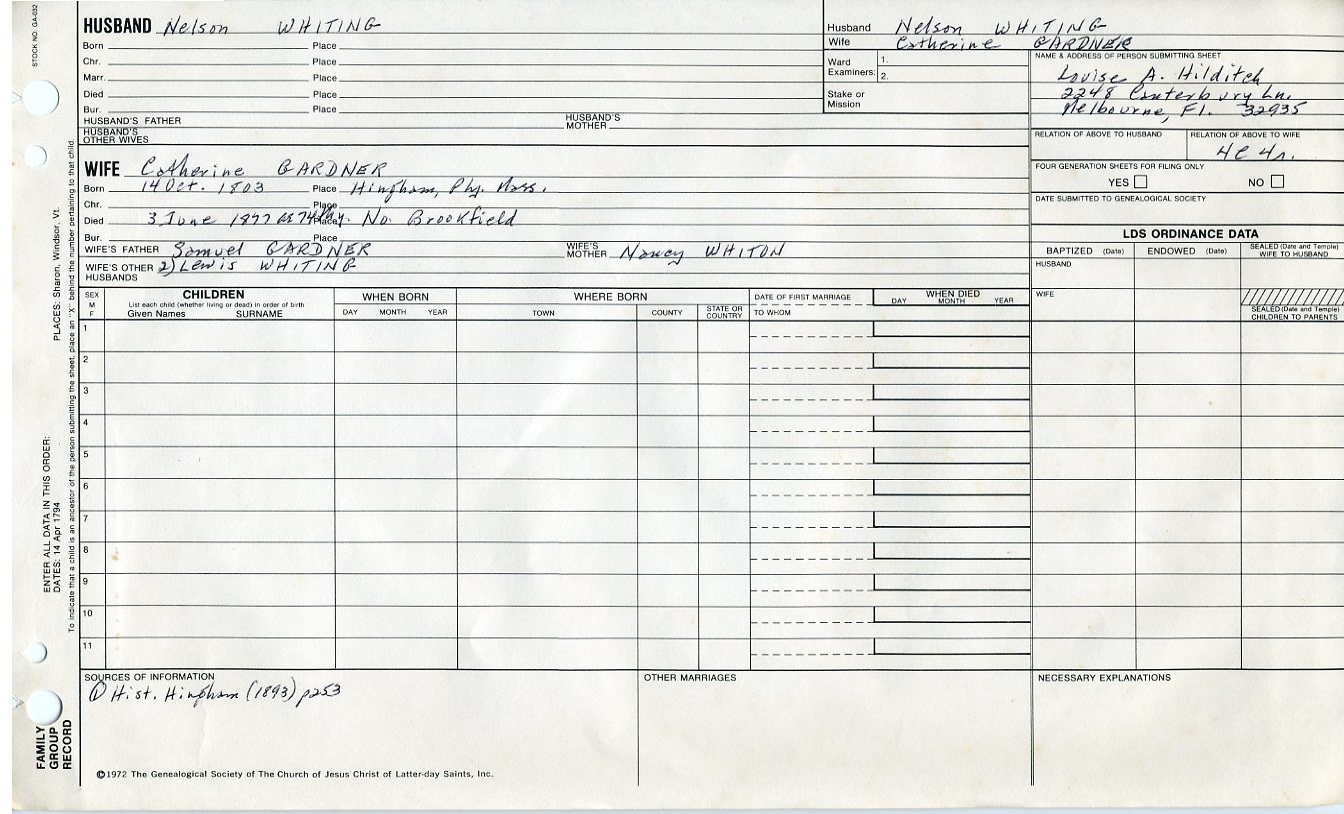 STOCK NO. GA-032
HUSBAND Nelson WHITING
Born Place
Chr. Place
Marr. Place
Died Place
Bur. Place
HUSBAND'S FATHER HUSBAND'S MOTHER
HUSBAND'S OTHER WIVES
Husband Nelson WHITING
Wife Catherine GARDNER
Ward Examiners: 1.
2.
Stake or Mission
NAME & ADDRESS OF PERSON SUBMITTING SHEET
Louise A. Hilditch
2248 Canterbury Ln.
Melbourne, Fl. 32935
RELATION OF ABOVE TO HUSBAND RELATION OF ABOVE TO WIFE
4C 4r.
FOUR GENERATION SHEETS FOR FILING ONLY
YES NO
DATE SUBMITTED TO GENEALOGICAL SOCIETY
WIFE Catherine GARDNER
Born 14 Oct. 1803 Place Hingham, Ply. Mass.
Chr. Place
Died 3 June 1877 Place No. Brookfield
Bur. Place
WIFE'S FATHER Samuel GARDNER WIFE'S MOTHER Nancy WHITON
WIFE'S OTHER HUSBANDS 2) Lewis WHITING
LDS ORDINANCE DATA
BAPTIZED (Date) ENDOWED (Date) SEALED (Date and Temple) WIFE TO HUSBAND
HUSBAND
WIFE
SEALED (Date and Temple) CHILDREN TO PARENTS
SEX M F
CHILDREN
List each child (whether living or dead) in order of birth
Given Names SURNAME
WHEN BORN
DAY MONTH YEAR
WHERE BORN
TOWN COUNTY STATE OR COUNTRY
DATE OF FIRST MARRIAGE
TO WHOM
WHEN DIED
DAY MONTH YEAR
1
2
3
4
5
6
7
8
9
10
11
SOURCES OF INFORMATION
① Hist. Hingham (1893) p253
OTHER MARRIAGES
NECESSARY EXPLANATIONS
©1972 The Genealogical Society of The Church of Jesus Christ of Latter-day Saints, Inc.
FAMILY GROUP RECORD
ENTER ALL DATA IN THIS ORDER:
DATES: 14 Apr 1794
PLACES: Sharon, Windsor, Vt.
To indicate that a child is an ancestor of the person submitting the sheet, place an "X" behind the number pertaining to that child.